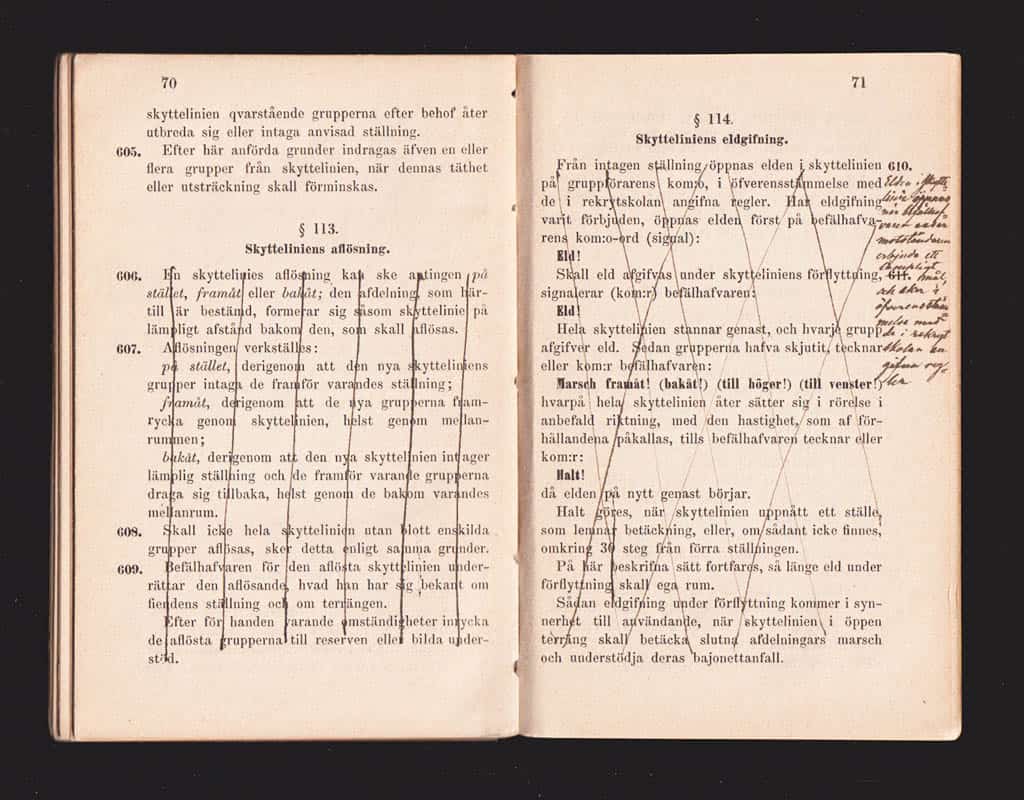 70
skyttelinien qvarstående grupperna efter behof åter
utbreda sig eller intaga anvisad ställning.
605. Efter här anförda grunder indragas äfven en eller
flera grupper från skyttelinien, när dennas täthet
eller utsträckning skall förminskas.
§ 113.
Skytteliniens aflösning.
606. En skyttelinies aflösning kan ske antingen på
stället, framåt eller bakåt; den afdelning, som här-
till är bestämd, formerar sig såsom skyttelinie på
lämpligt afstånd bakom den, som skall aflösas.
607. Aflösningen verkställes:
på stället, derigenom att den nya skytteliniens
grupper intaga de framför varandes ställning;
framåt, derigenom att de nya grupperna fram-
rycka genom skyttelinien, helst genom mellan-
rummen;
bakåt, derigenom att den nya skyttelinien intager
lämplig ställning och de framför varande grupperna
draga sig tillbaka, helst genom de bakom varandes
mellanrum.
608. Skall icke hela skyttelinien utan blott enskilda
grupper aflösas, sker detta enligt samma grunder.
609. Befälhafvaren för den aflösta skyttelinien under-
rättar den aflösande, hvad han har sig bekant om
fiendens ställning och om terrängen.
Efter för handen varande omständigheter inrycka
de aflösta grupperna till reserven eller bilda under-
stöd.
71
§ 114.
Skytteliniens eldgifning.
Från intagen ställning öppnas elden i skyttelinien 610.
på gruppförarens kom:o, i öfverensstämmelse med
de i rekrytskolan angifna regler. Har eldgifning
varit förbjuden, öppnas elden först på befälhafva-
rens kom:o-ord (signal):
Eld!
Skall eld afgifvas under skytteliniens förflyttning, 611.
signalerar (kom:r) befälhafvaren:
Eld!
Hela skyttelinien stannar genast, och hvarje grupp
afgifver eld. Sedan grupperna hafva skjutit, tecknar
eller kom:r befälhafvaren:
Marsch framåt! (bakåt!) (till höger!) (till venster!)
hvarpå hela skyttelinien åter sätter sig i rörelse i
anbefald riktning, med den hastighet, som af för-
hållandena påkallas, tills befälhafvaren tecknar eller
kom:r:
Halt!
då elden på nytt genast börjar.
Halt göres, när skyttelinien uppnått ett ställe,
som lemnar betäckning, eller, om sådant icke finnes,
omkring 30 steg från förra ställningen.
På här beskrifna sätt fortfares, så länge eld under
förflyttning skall ega rum.
Sådan eldgifning under förflyttning kommer i syn-
nerhet till användande, när skyttelinien i öppen
terräng skall betäcka slutna afdelningars marsch
och understödja deras bajonettanfall.
Elden i skytte-
linie öppnas
när
motståndaren
erbjuda ett
mål,
och sker i
öfverensstäm
melse med
de i rekryt
skolan an
gifna reg-
ler